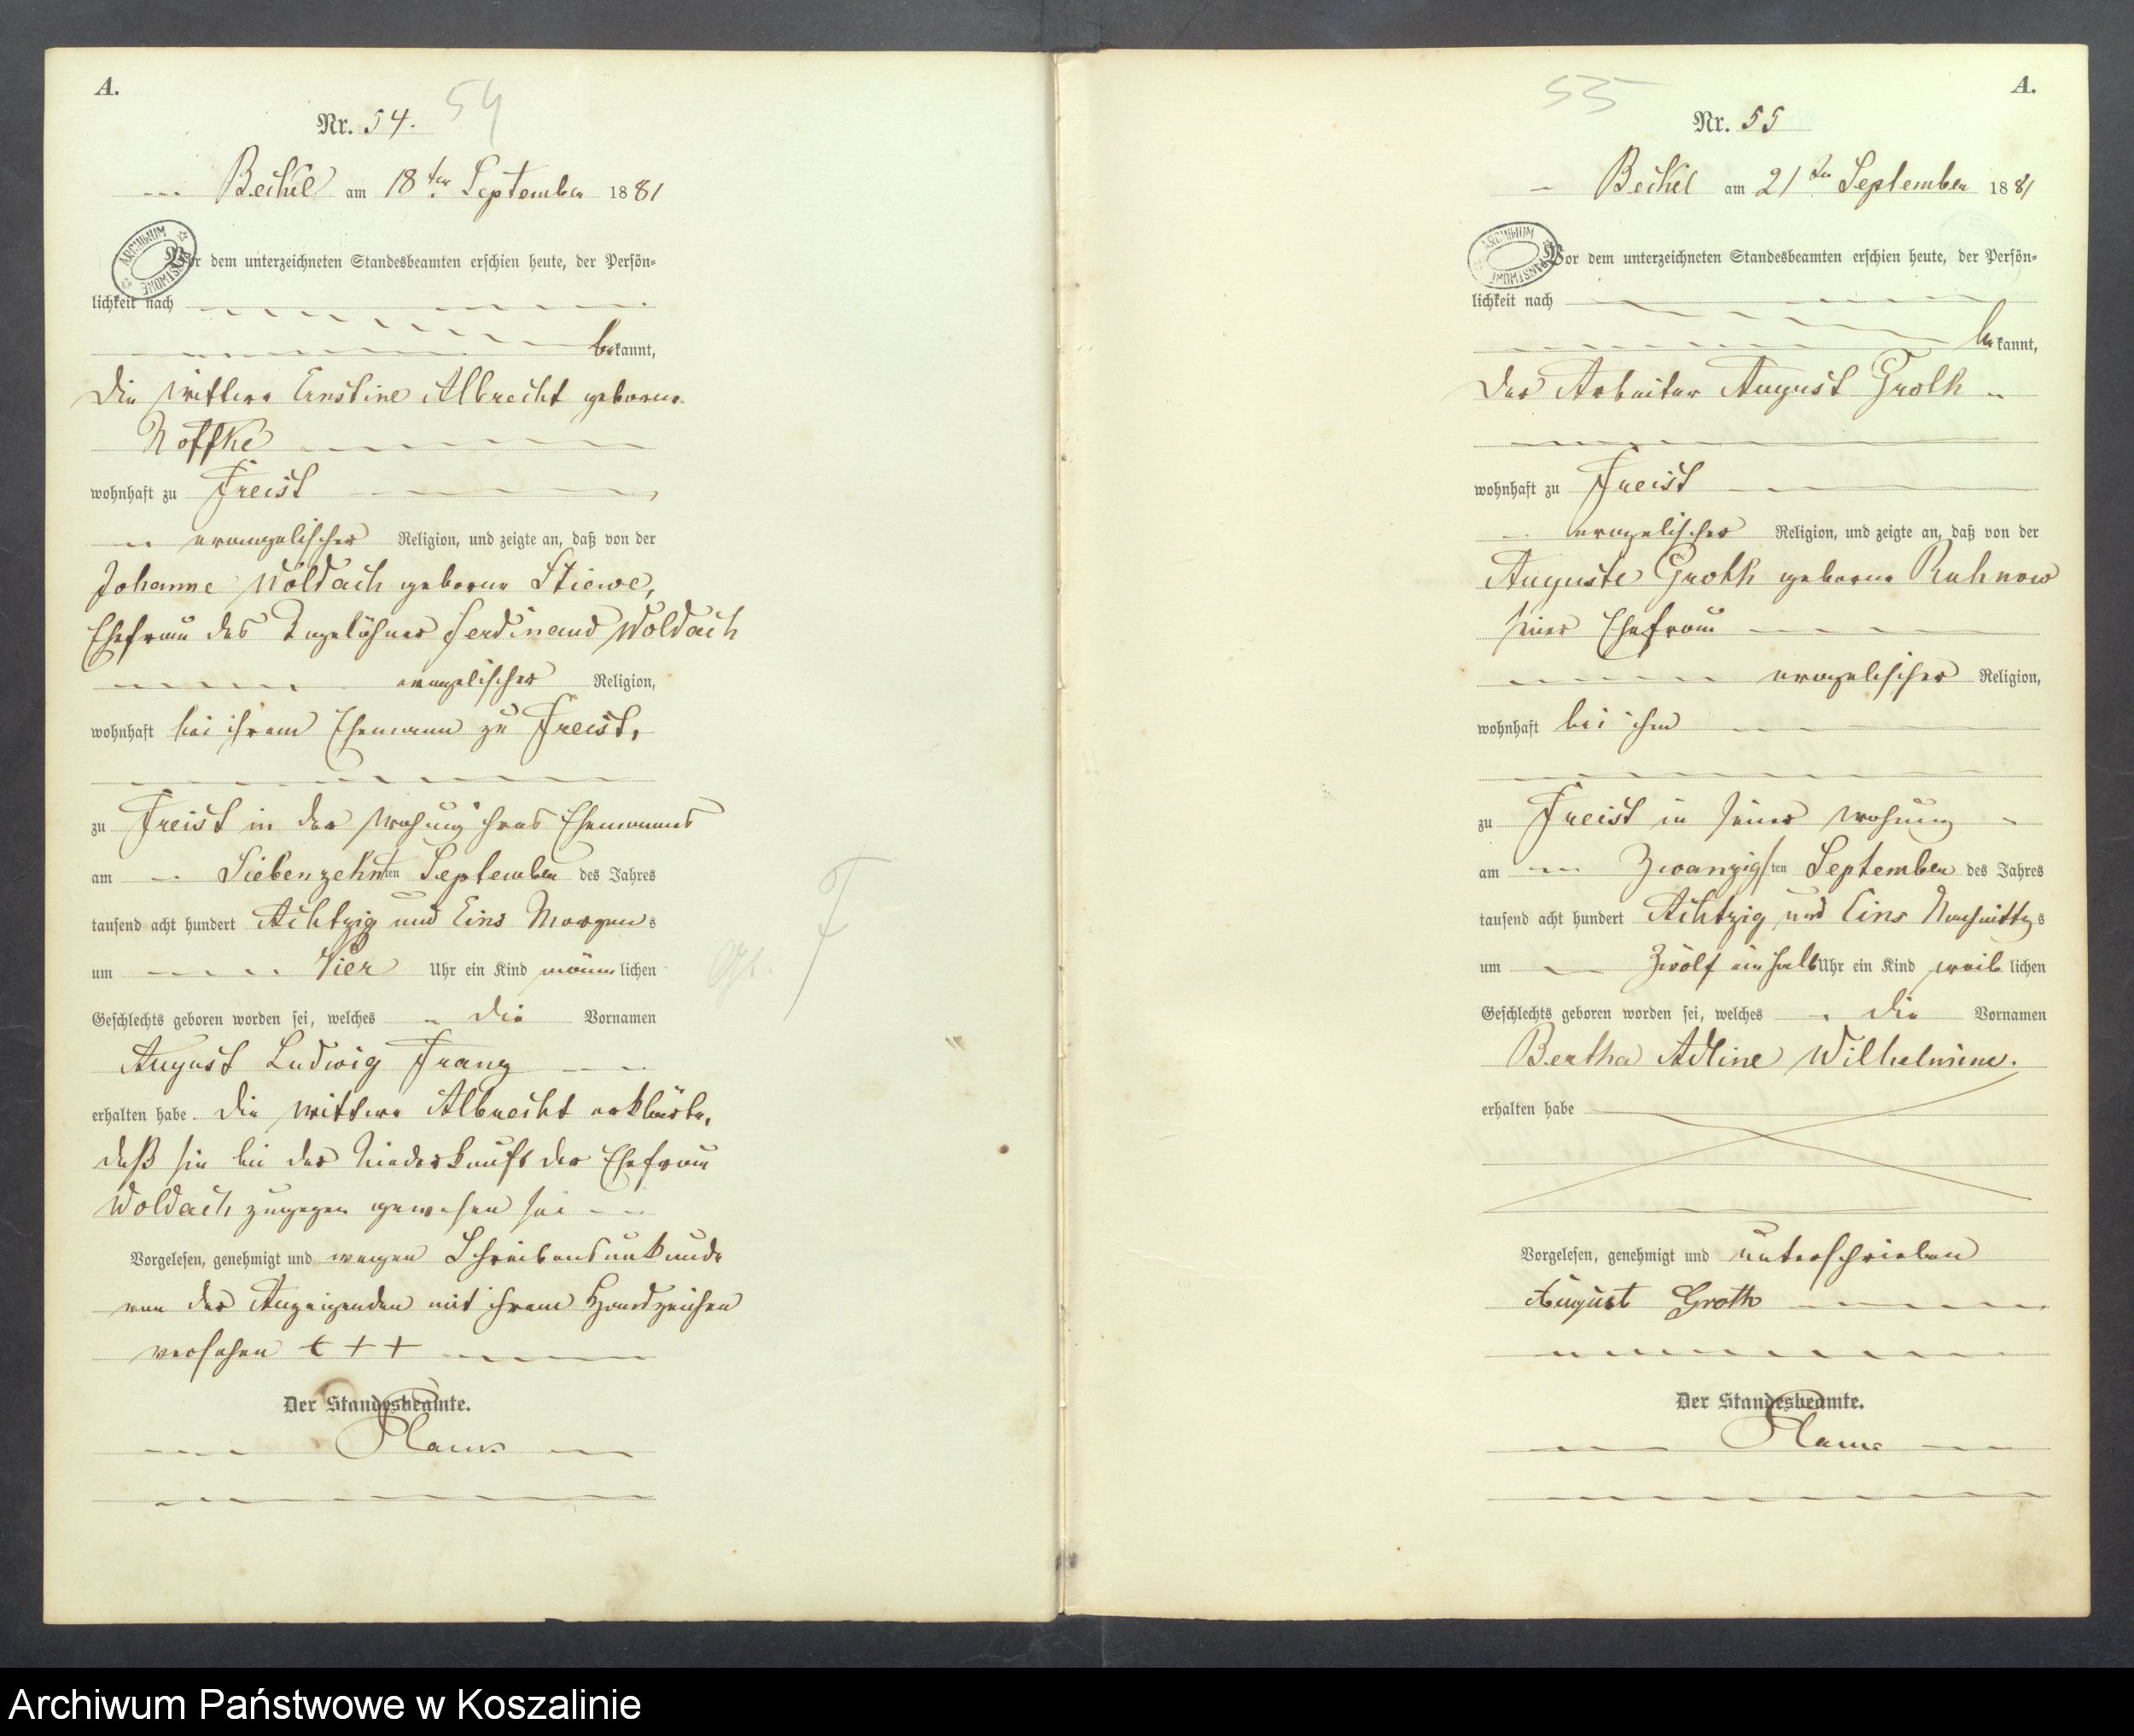 A.
54
Nr. 54.
Beckel am 18ten September 1881
ARCHIWUM PAŃSTWOWE
Vor dem unterzeichneten Standesbeamten erschien heute, der Persön-
lichkeit nach
bekannt,
die Wittwe Ernstine Albrecht geborne
Noffke
wohnhaft zu Freist
evangelischer Religion, und zeigte an, daß von der
Johanne Woldach geborne Stiewe,
Ehefrau des Tagelöhner Ferdinand Woldach
evangelischer Religion,
wohnhaft bei ihrem Ehemann zu Freist,
zu Freist in der Wohnung ihres Ehemannes
am Siebenzehnten September des Jahres
tausend acht hundert Achtzig und Eins Morgens
um Vier Uhr ein Kind männlichen
Geschlechts geboren worden sei, welches die Vornamen
August Ludwig Franz
erhalten habe. Die Wittwe Albrecht erklärte,
daß sie bei der Niederkunft der Ehefrau
Woldach zugegen gewesen sei
Vorgelesen, genehmigt und wegen Schreibensunkunde
von der Anzeigenden mit ihrem Handzeichen
versehen + + +
Der Standesbeamte.
A.
55
Nr. 55
Beckel am 21ten September 1881
ARCHIWUM PAŃSTWOWE
Vor dem unterzeichneten Standesbeamten erschien heute, der Persön-
lichkeit nach
bekannt,
der Arbeiter August Groth
wohnhaft zu Freist
evangelischer Religion, und zeigte an, daß von der
Auguste Groth geborne Ruhnow
seiner Ehefrau
evangelischer Religion,
wohnhaft bei ihm
zu Freist in seiner Wohnung
am Zwanzigsten September des Jahres
tausend acht hundert Achtzig und Eins Nachmittags
um Zwölf ein halb Uhr ein Kind weiblichen
Geschlechts geboren worden sei, welches die Vornamen
Bertha Adline Wilhelmine.
erhalten habe
Vorgelesen, genehmigt und unterschrieben
August Groth
Der Standesbeamte.
Archiwum Państwowe w Koszalinie